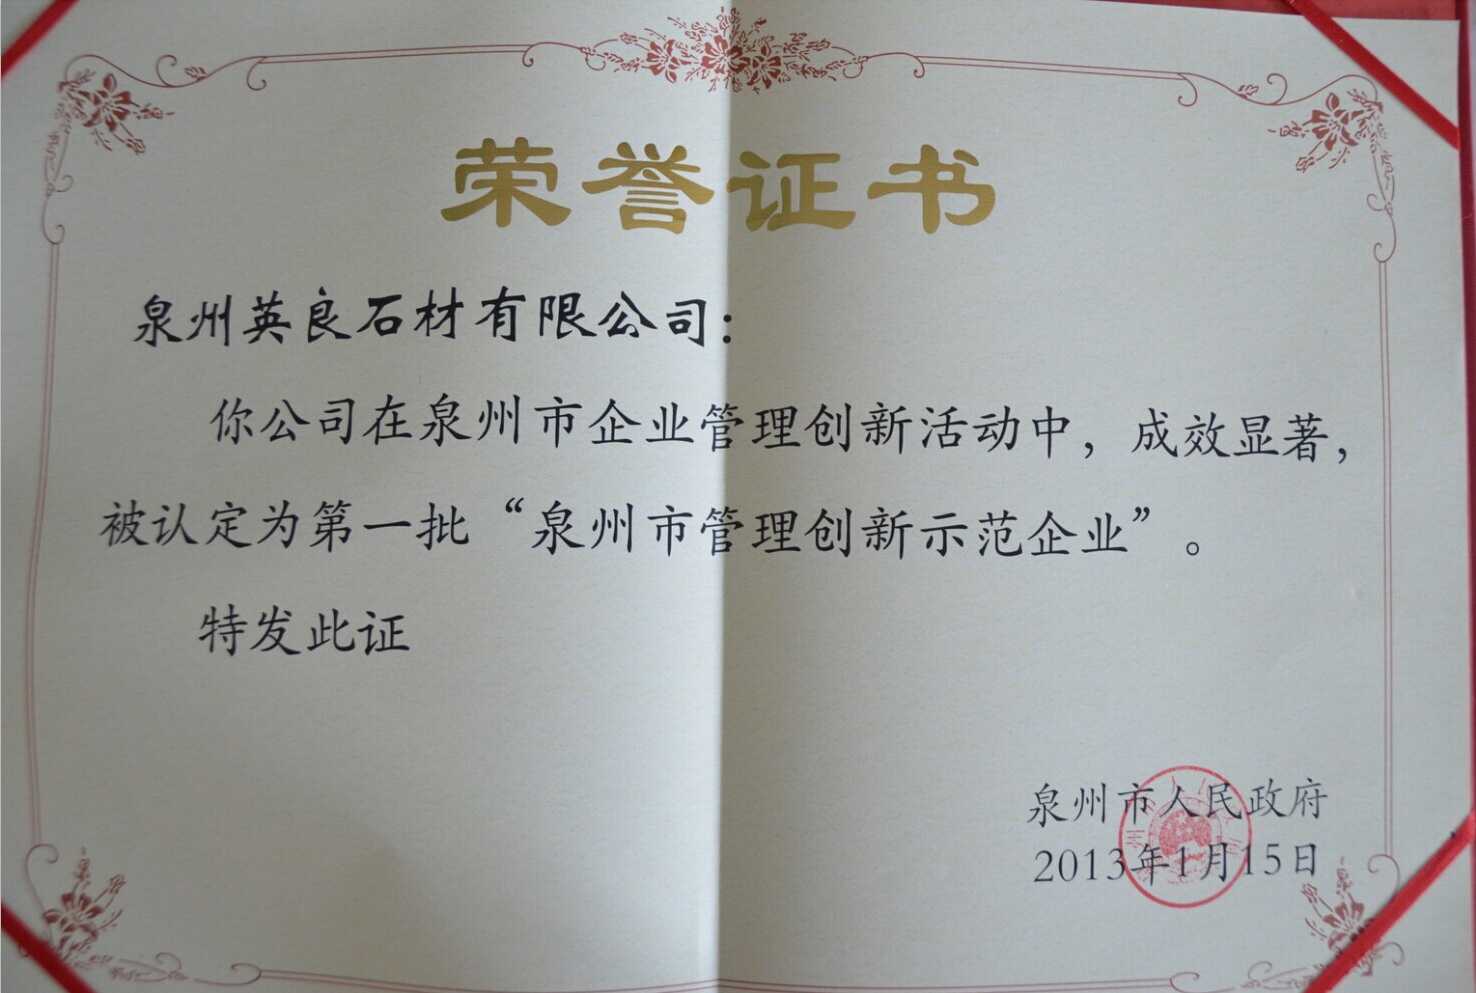 荣誉证书
泉州英良石材有限公司：
你公司在泉州市企业管理创新活动中，成效显著，
被认定为第一批“泉州市管理创新示范企业”。
特发此证
泉州市人民政府
2013年1月15日